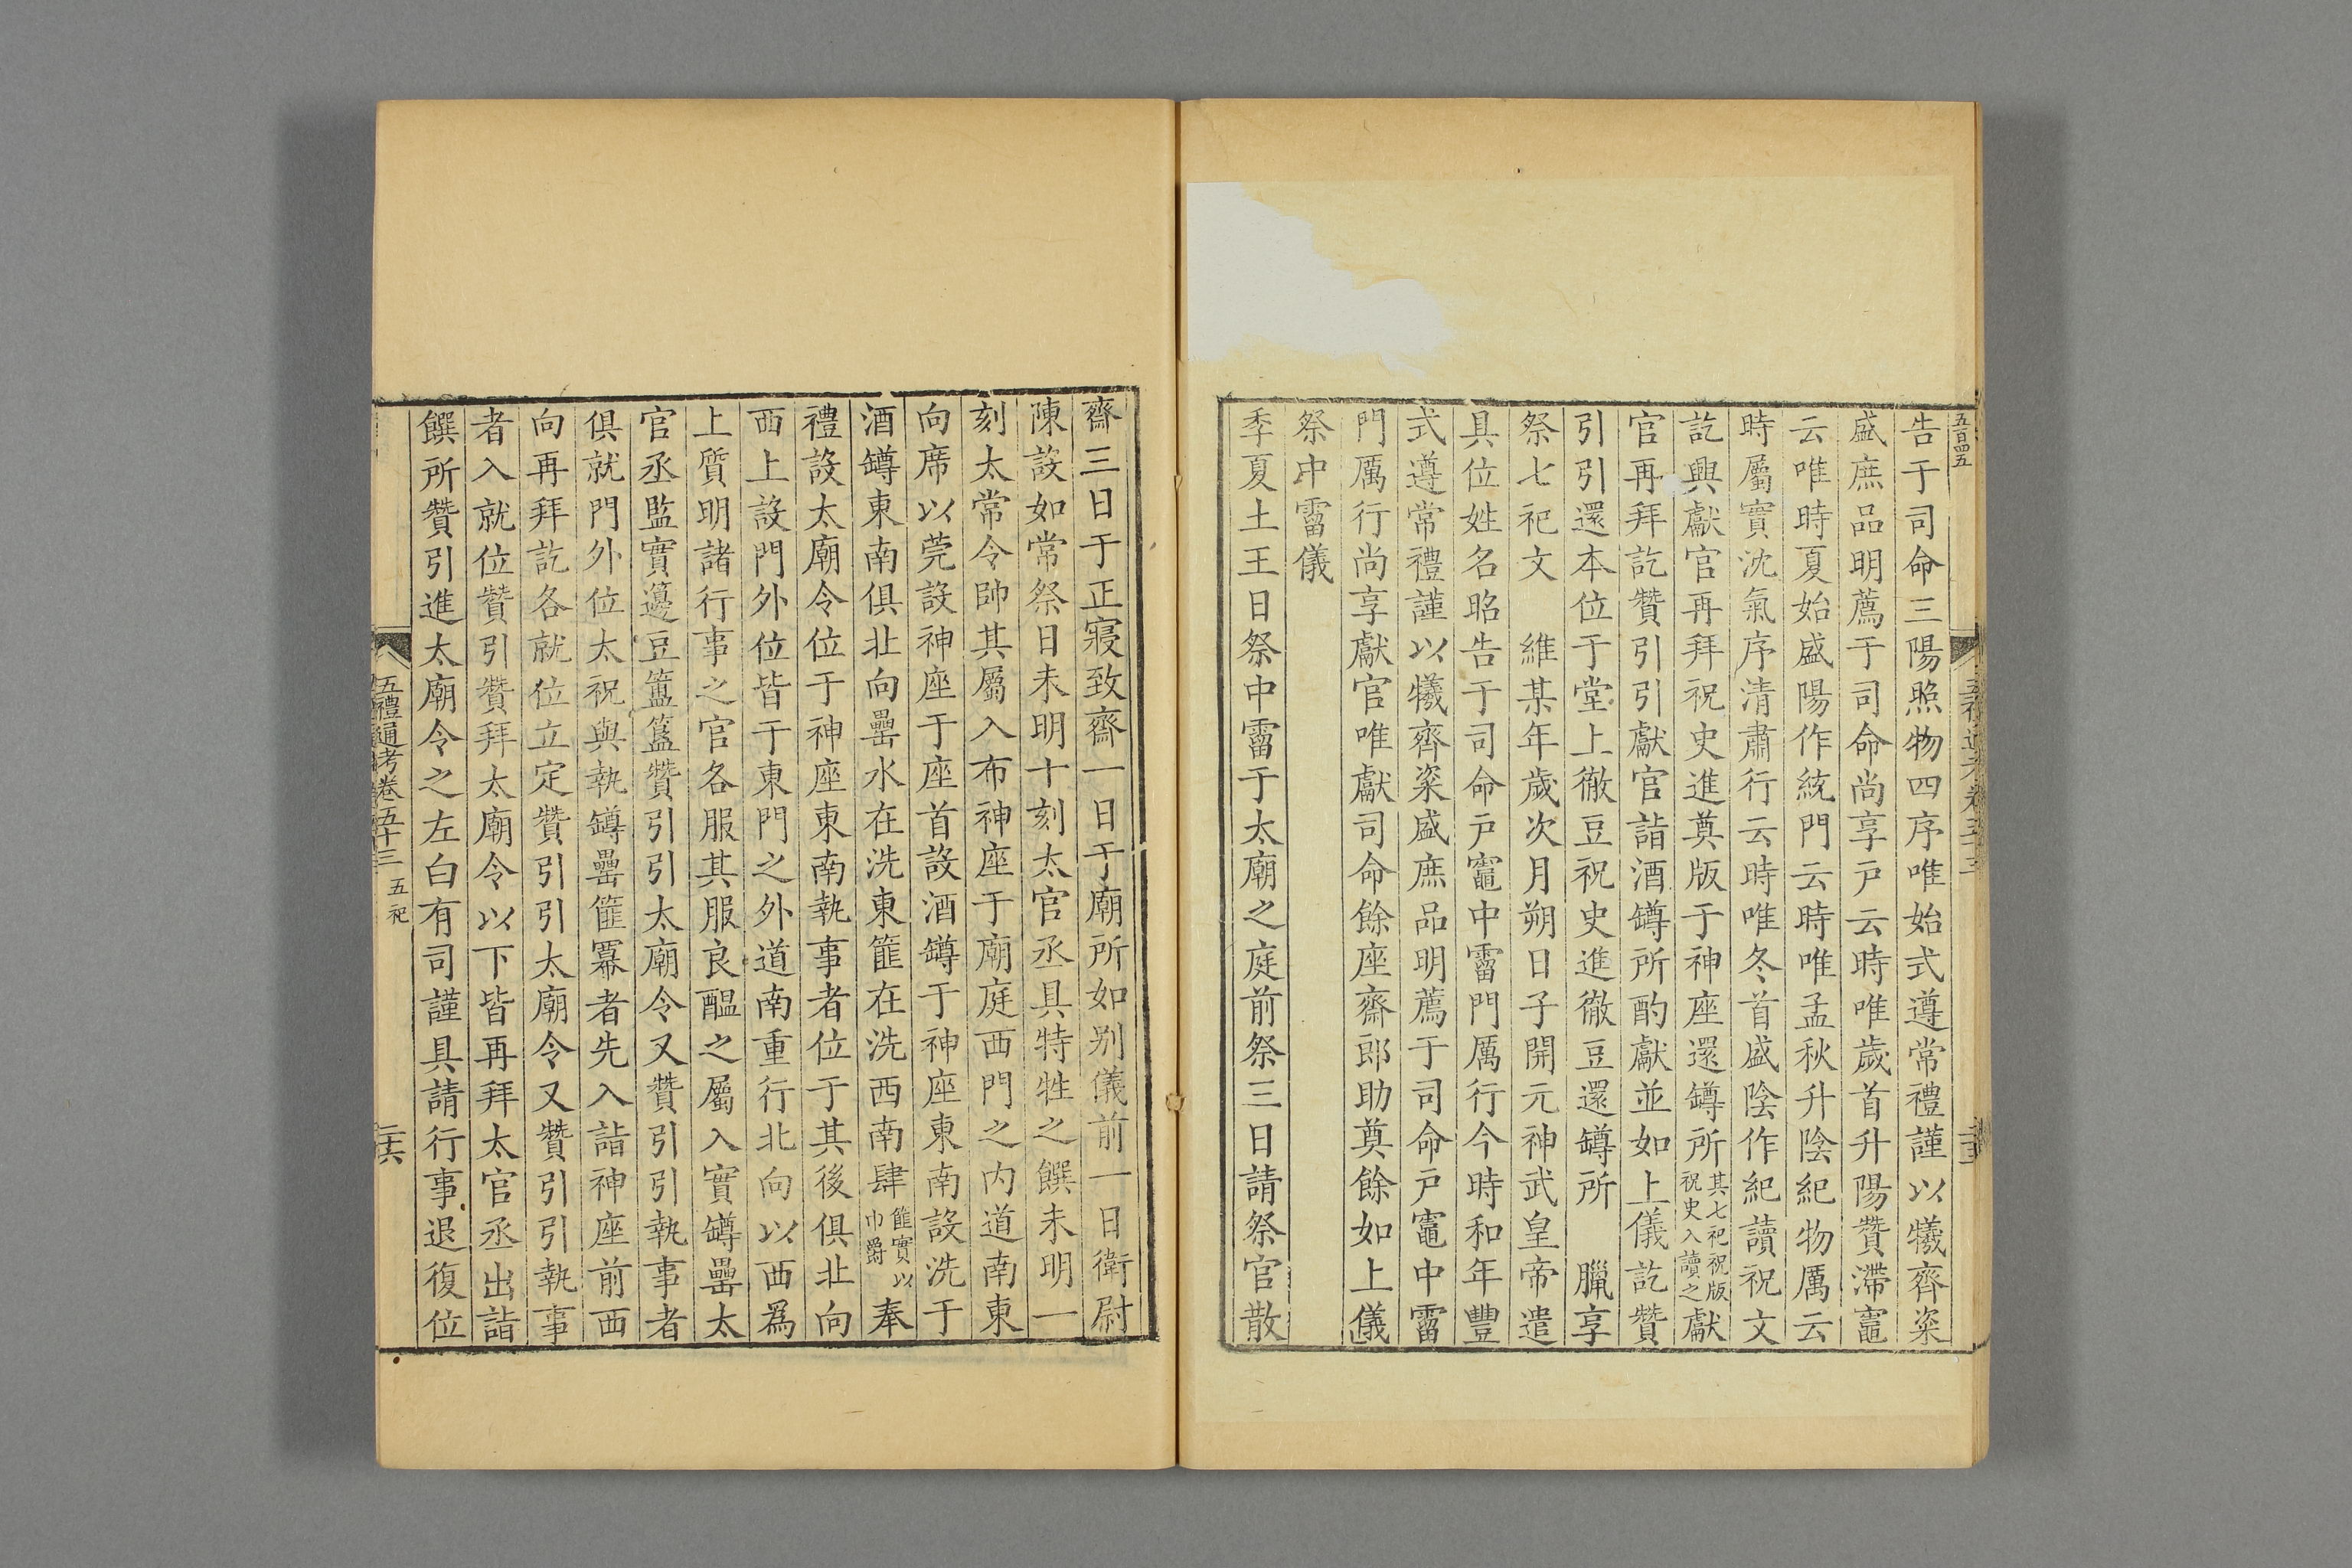 五百四五
告于司命三陽照物四序唯始式遵常禮謹以犧齊粢
盛庶品明薦于司命尚享戸云時唯歲首升陽贊滯竈
云唯時夏始盛陽作統門云時唯孟秋升陰紀物厲云
時屬實沈氣序清肅行云時唯冬首盛陰作紀讀祝文
訖興獻官再拜祝史進奠版于神座還罇所其七祀祝版祝史入讀之獻
官再拜訖贊引引獻官詣酒罇所酌獻並如上儀訖贊
引引還本位于堂上徹豆祝史進徹豆還罇所　臘享
祭七祀文　維某年歲次月朔日子開元神武皇帝遣
具位姓名昭告于司命戸竈中霤門厲行今時和年豐
式遵常禮謹以犧齊粢盛庶品明薦于司命戸竈中霤
門厲行尚享獻官唯獻司命餘座齋郎助奠餘如上儀
祭中霤儀
季夏土王日祭中霤于太廟之庭前祭三日請祭官散
齋三日于正寢致齋一日于廟所如别儀前一日衛尉
陳設如常祭日未明十刻太官丞具特牲之饌未明一
刻太常令帥其屬入布神座于廟庭西門之内道南東
向席以莞設神座于座首設酒罇于神座東南設洗于
酒罇東南俱北向罍水在洗東篚在洗西南肆篚實以巾爵奉
禮設太廟令位于神座東南執事者位于其後俱北向
西上設門外位皆于東門之外道南重行北向以西爲
上質明諸行事之官各服其服良醞之屬入實罇罍太
官丞監實籩豆簠簋贊引引太廟令又贊引引執事者
俱就門外位太祝與執罇罍篚冪者先入詣神座前西
向再拜訖各就位立定贊引引太廟令又贊引引執事
者入就位贊引贊拜太廟令以下皆再拜太官丞出詣
饌所贊引進太廟令之左白有司謹具請行事退復位
五禮通考卷五十三　五祀　二六